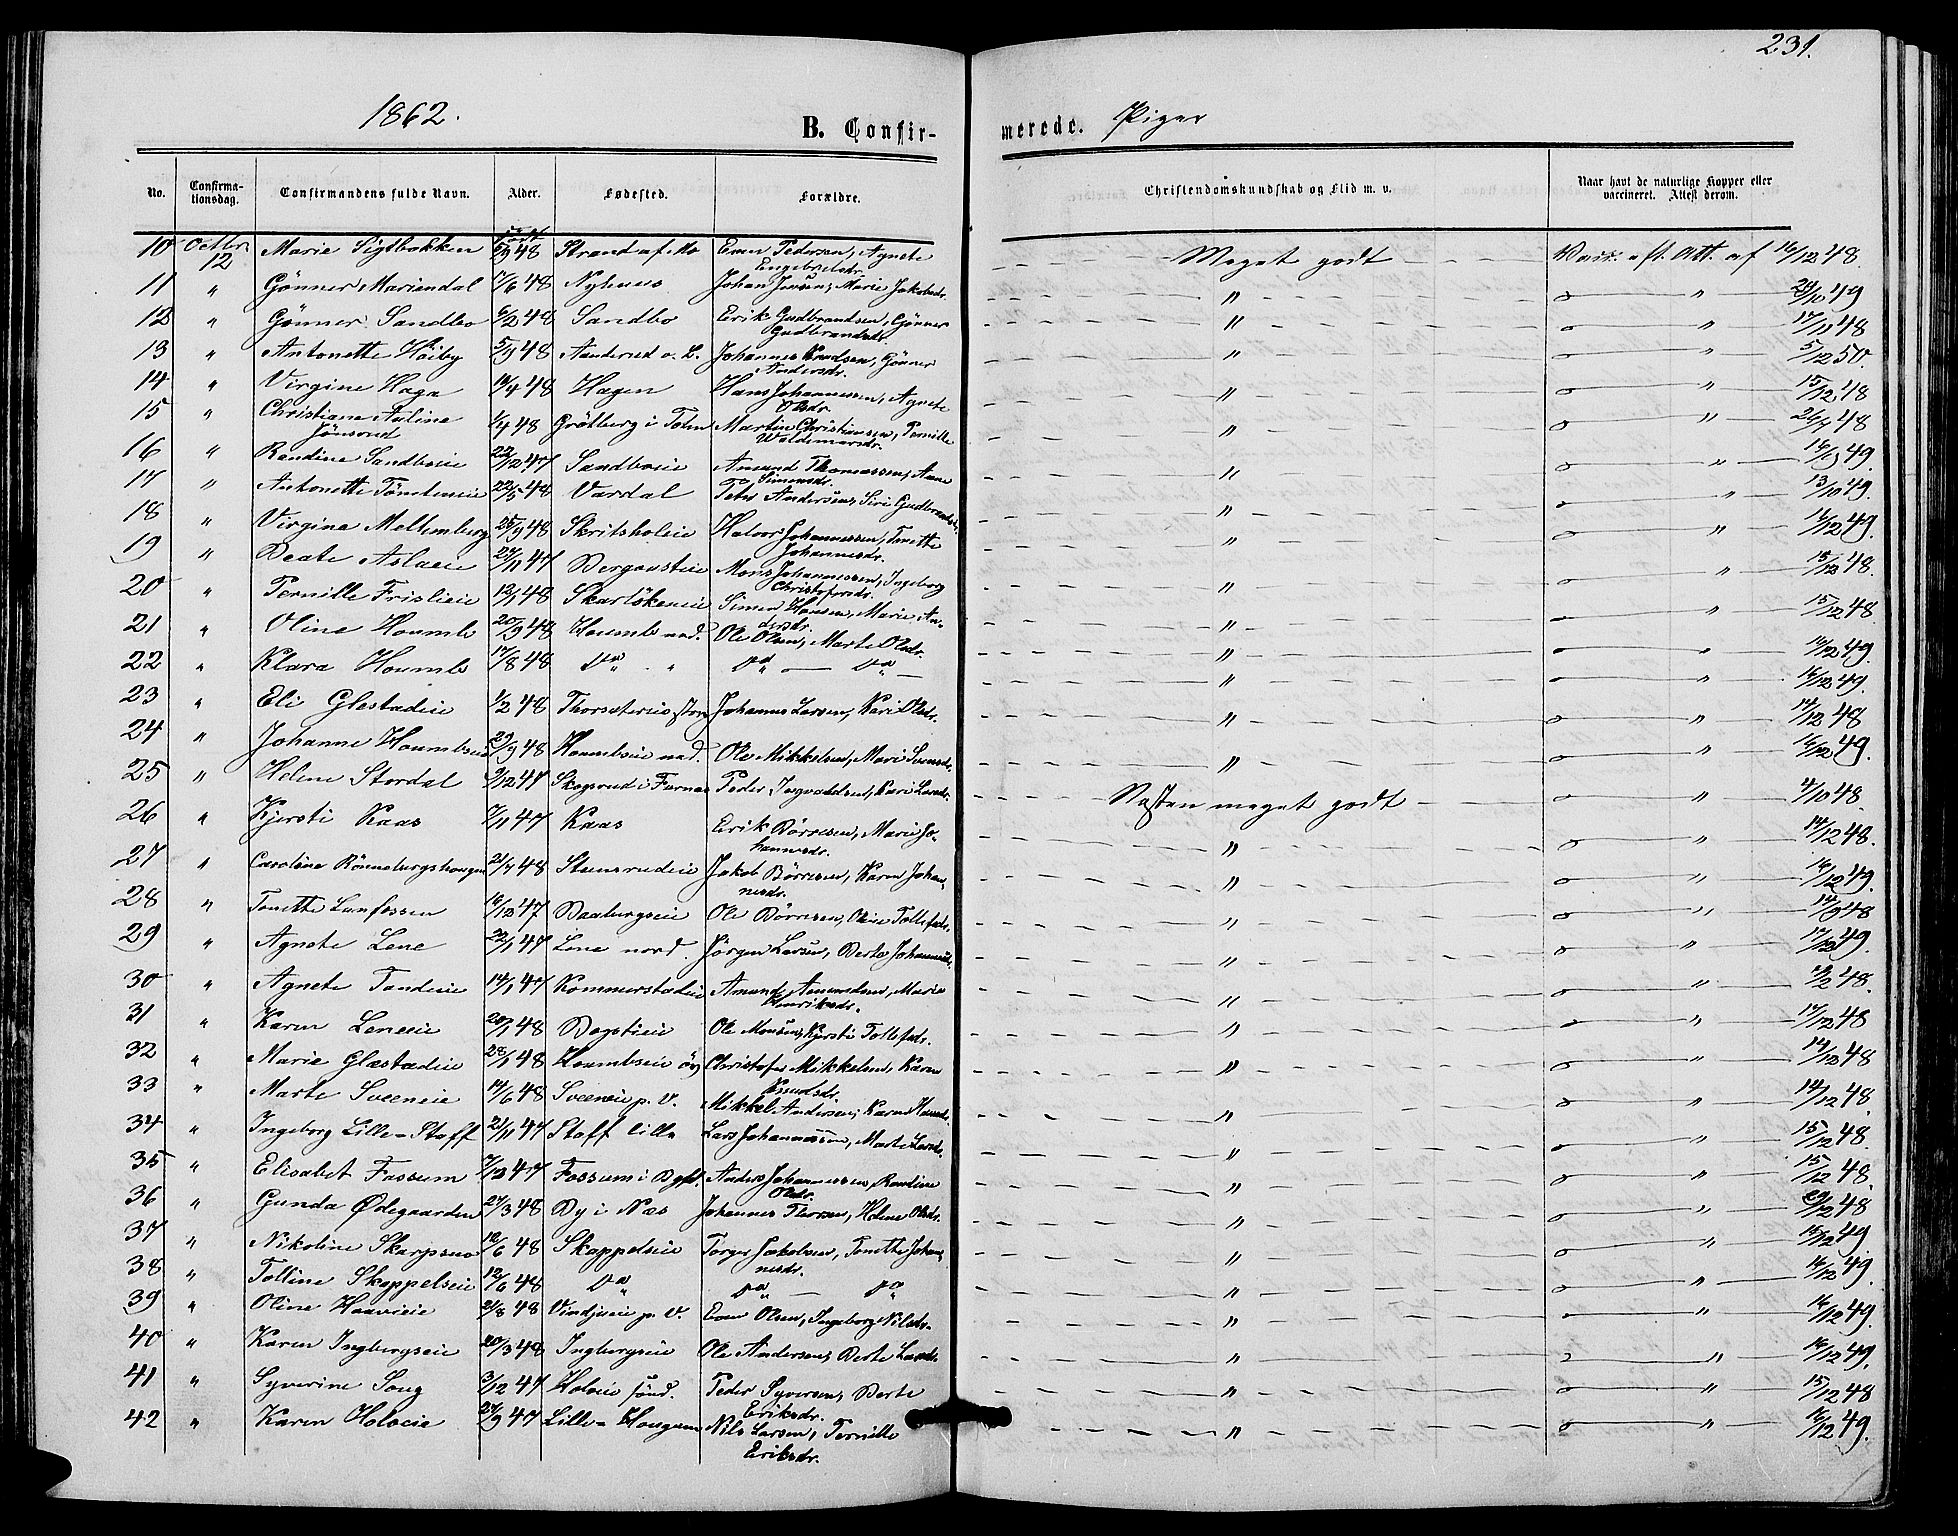 231.
1862.
B. Confir- merede. Piger
No. Confirma-tionsdag. Confirmandens fulde Navn. Alder. Fødested. Forældre. Christendomskundskab og Flid m. v. Naar havt de naturlige Kopper eller vaccineret. Attest derom.
født
10 Octbr. 12 Marie Sigtbakken 48 Strand af Mo Even Pedersen, Agnete Engebretsdr. Meget godt Vacc. eft. Att. af 16/12 48.
11 " Gønner Mariendal 17/6 48 Nyhuus Johan Jensen, Marie Jakobsdr. " " 29/10 49
12 " Gønner Sandbo 6/2 48 Sandbo Erik Gudbrandsen, Gønner Gudbrandsdr. " " 17/11 48
13 " Antonette Høiby 5/9 48 Aanderud v. L. Johannes Knudsen, Gønner Andersdr. " " 5/12 50.
14 " Virgine Haga 48 Hagen Hans Johannessen, Agnete Olsdr. " " 15/12 48
15 " Christiane Auline Jønsrud 1/4 48 Grøtberg i Totn Martin Christiansen, Pernille Waldemarsdr. " " 26/7 48
16 " Randine Sandboeie 22/12 47 Sandboeie Amund Thomassen, Anne Simensdr. " " 49.
17 " Antonette Tønsteneie 22/5 48 Vardal Peter Andersen, Siri Gudbrandsdr. " " 13/10 49.
18 " Virgine Mellemberg 25/9 48 Skritsholeie Halvor Johannessen, Tonette Johannesdr. " " 16/12 49.
19 " Beate Aslaeie 27/11 47 Bergauteie Mons Johannessen, Ingeborg Christofersdr. " " 15/12 48.
20 " Pernille Frislieie 12/1 48 Skarløkeneie Simen Hansen, Marie Andersdr. " " 15/12 48
21 " Oline Houmb 20/9 48 Houmb ned. Ole Olsen, Marte Olsdr. " " 14/12 49.
22 " Klara Houmb 17/8 48 Do " Do — Do " " 16/12 49.
23 " Eli Glestadeie 1/2 48 Thorsætereie Johannes Larsen, Kari Olsdr. " " 14/12 48
24 " Johanne Houmbseie 29/9 48 Houmbseie ned. Ole Mikkelsen, Mari Svensdr. " " 16/12 49.
25 " Helene Stordal 9/12 47 Skogsrud i Furnæs Peder Ingvaldsen, Kari Larsdr. Næsten meget godt " 4/10 48.
26 " Kjersti Kaas 7/11 47 Kaas Erik Børresen, Marie Johannesdr. " " 14/12 48.
27 " Caroline Rønnebergshaugen 21/7 48 Steensrudeie Jakob Børresen, Karen Johannesdr. " " 16/12 49.
28 " Tonette Lunfossen 16/12 47 Baabergseie Ole Børresen, Oline Tollefsdr. " " 14/9 48
29 " Agnete Lene 22/1 47 Lene nord. Jørgen Larsen, Berte Johannesdr. " " 17/12 49.
30 " Agnete Tandeie 14/1 47 Kommerstadeie Amund Amundsen, Marie Henriksdr. " " 48.
31 " Karen Leneeie 20/1 48 Bogstieie Ole Monsen, Kjersti Tollefsdr. " " 17/12 48
32 " Marie Glæstadeie 28/1 48 Houmbseie øv Christofer Mikkelsen, Karen Knudsdr. " " 14/12 48
33 " Marte Sveeneie 14/6 48 Sveeneie p. V. Mikkel Andersen, Karen Hansdr. " " 14/12 48.
34 " Ingeborg Lille-Staff 21/11 47 Staff lille Lars Johannessen, Marte Larsdr. " " 15/12 48.
35 " Elisabet Fossum 7/12 47 Fossum i Bgfl. Anders Johannessen, Randine Olsdr. " " 15/12 48.
36 " Gunda Ødegaarden 27/3 48 By i Næs Johannes Thorsen, Helene Olsdr. " " 29/12 48
37 " Nikoline Skarpsno 12/6 48 Skappelseie Torger Jakobsen, Tonette Johannesdr. " " 15/12 49
38 " Tolline Skappelseie 12/6 48 Do Do — Do " " 16/12 49.
39 " Oline Haavieie 21/8 48 Vindjueie p. V. Even Olsen, Ingeborg Nilsdr. " " 16/12 49.
40 " Karen Ingbergseie 20/3 48 Ingbergseie Ole Andersen, Berte Larsdr. " " 16/12 49.
41 " Syverine Song 3/12 47 Holoeie sønd. Peder Syversen, Berte Eriksdr. " " 15/12 48
42 " Karen Holoeie 27/9 47 Lille-Haugum Nils Larsen, Pernille Eriksdr. " " 16/12 49.